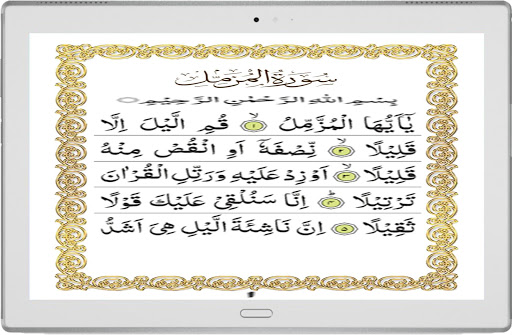 سورة المزمل
بِسْمِ اللهِ الرَّحْمٰنِ الرَّحِيْمِ
يٰۤاَيُّهَا الْمُزَّمِّلُ ۙ﴿۱﴾ قُمِ الَّيْلَ اِلَّا
قَلِيْلًا ۙ﴿۲﴾ نِّصْفَهٗۤ اَوِ انْقُصْ مِنْهُ
قَلِيْلًا ۙ﴿۳﴾ اَوْ زِدْ عَلَيْهِ وَ رَتِّلِ الْقُرْاٰنَ
تَرْتِيْلًا ؕ﴿۴﴾ اِنَّا سَنُلْقِيْ عَلَيْكَ قَوْلًا
ثَقِيْلًا ﴿۵﴾ اِنَّ نَاشِئَةَ الَّيْلِ هِيَ اَشَدُّ